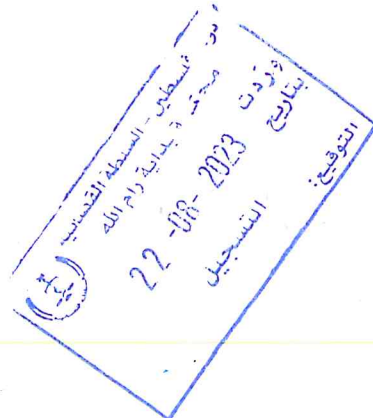 فلسطين - السلطة القضائية
محكمة بداية رام الله
وردت
بتاريخ
22 -08- 2023
التسجيل
التوقيع: